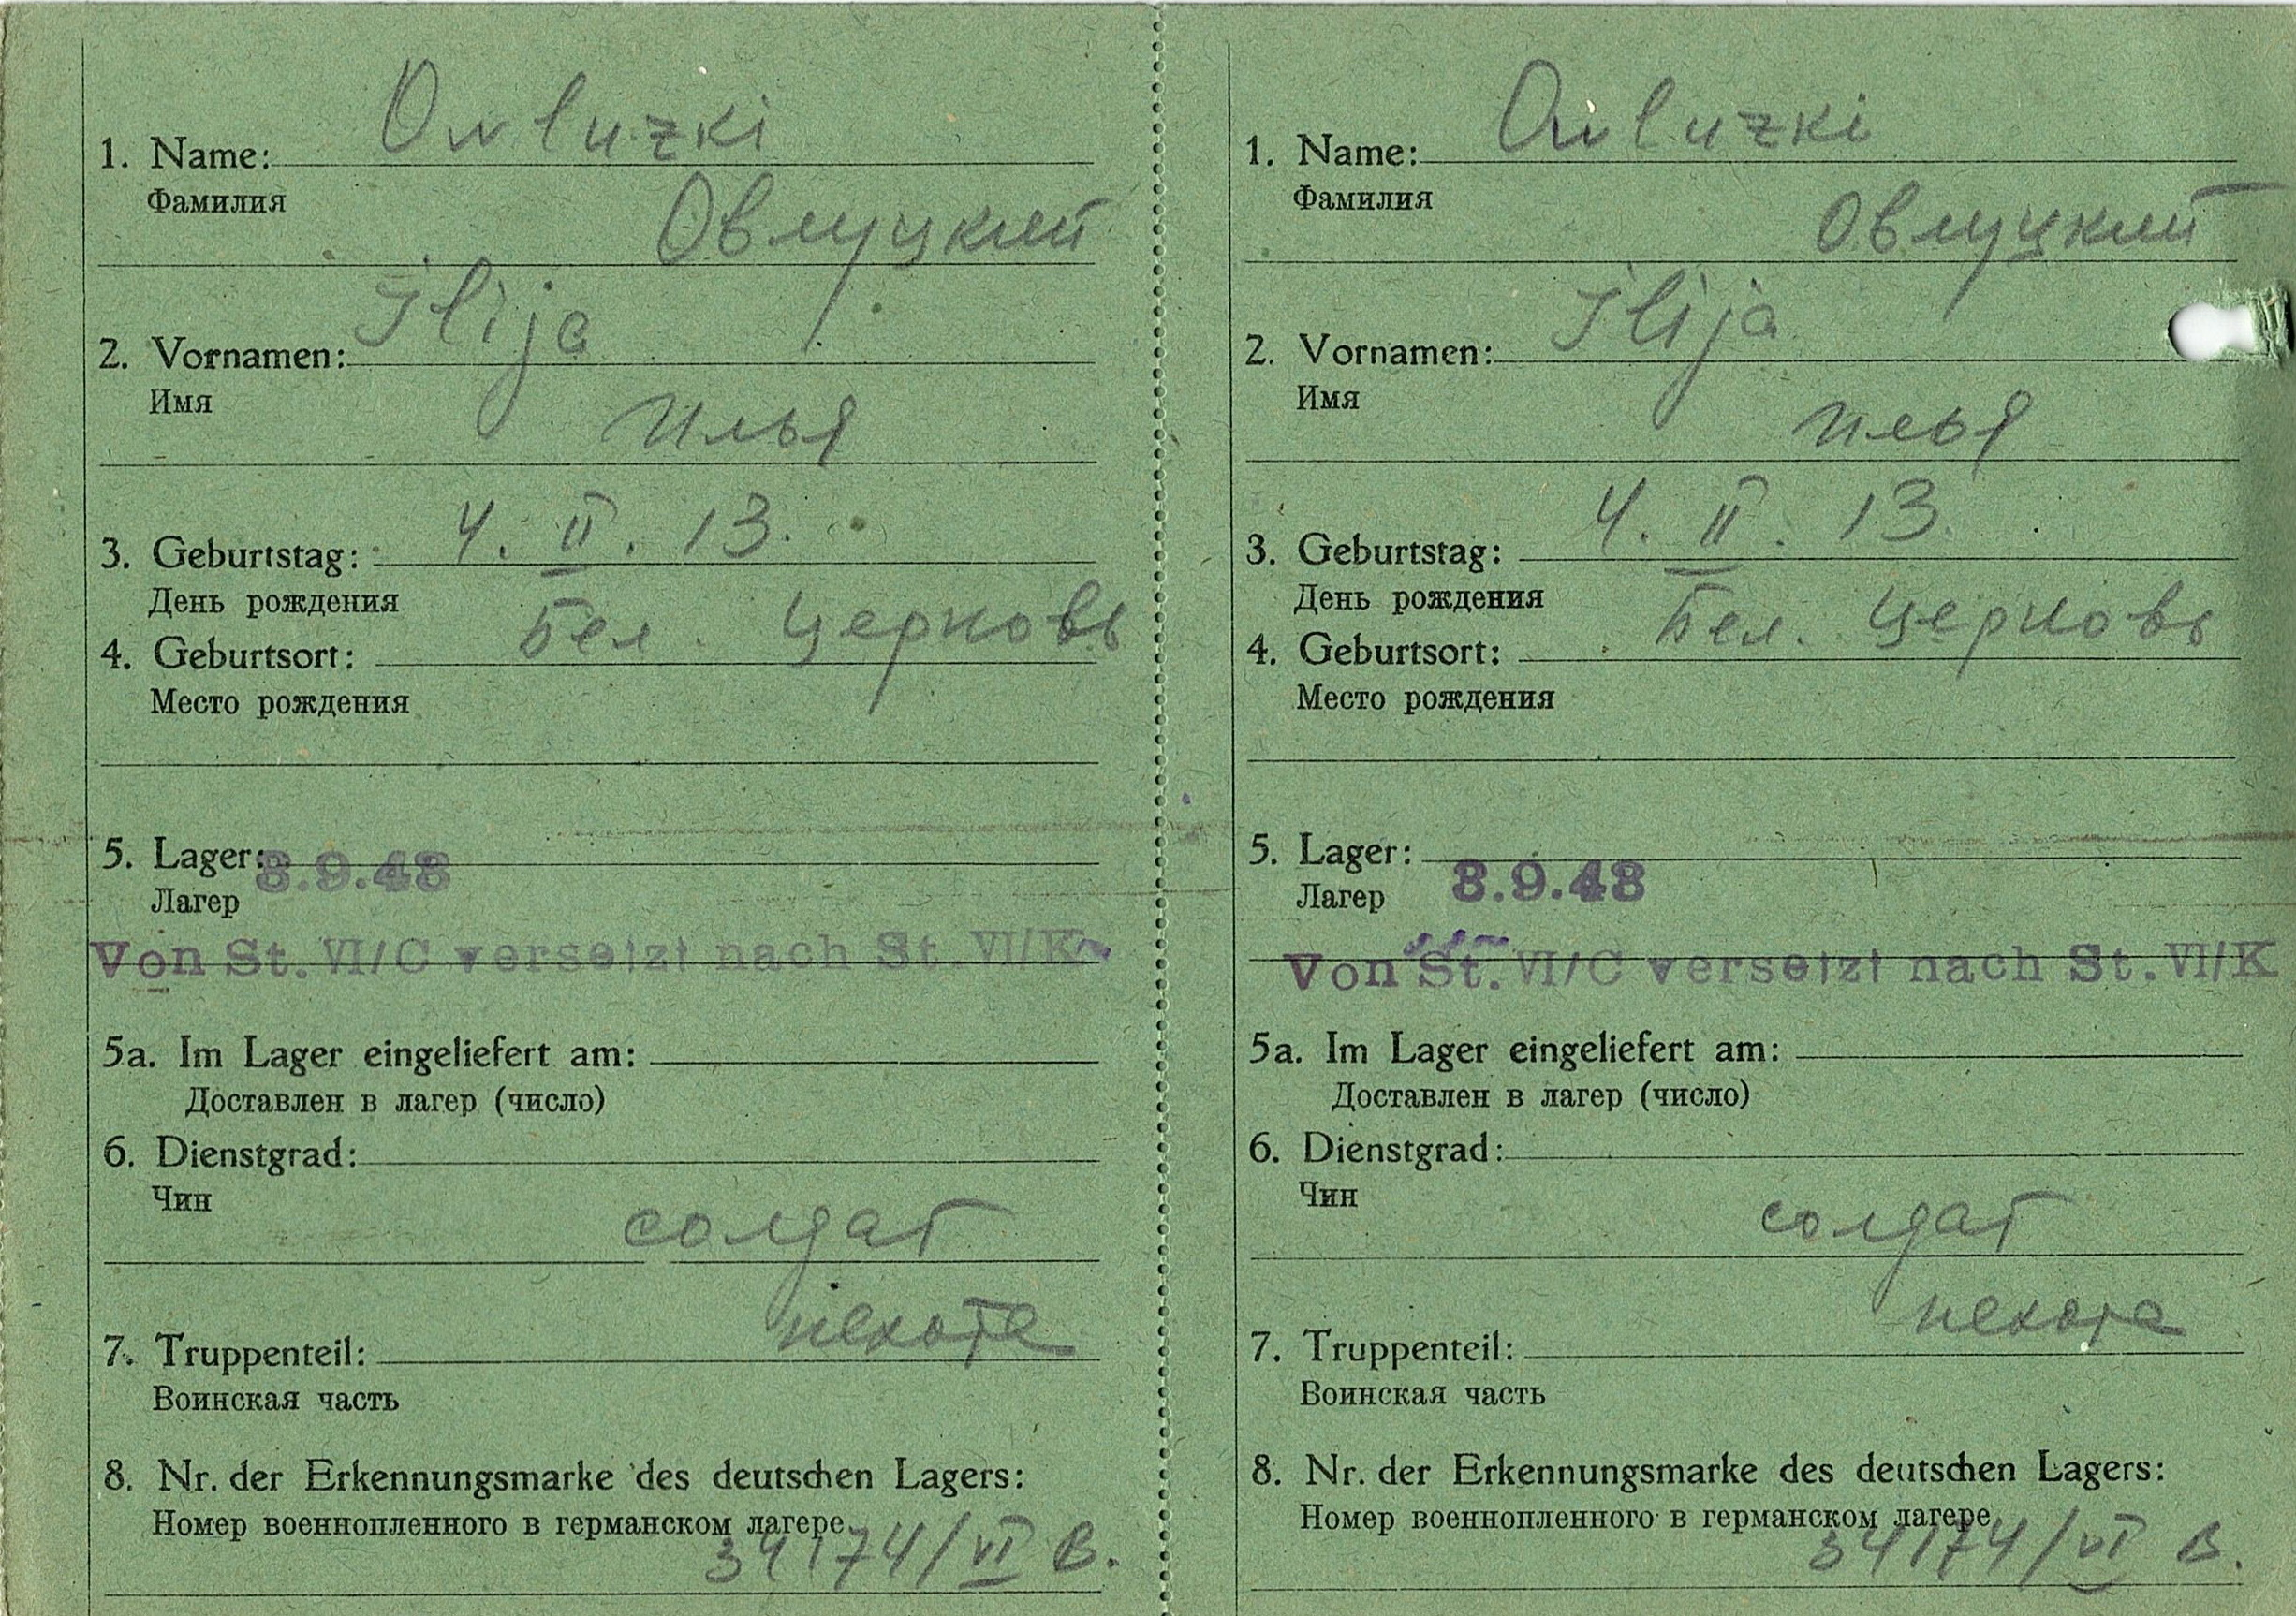 1. Name: Owluzki
Фамилия
Овлуцкий
2. Vornamen: Ilija
Имя
Илья
3. Geburtstag: 4. II. 13.
День рождения
4. Geburtsort: Бел. Церковь
Место рождения
5. Lager:
8.9.43
Лагер
Von St. VI/C versetzt nach St. VI/K
5a. Im Lager eingeliefert am:
Доставлен в лагер (число)
6. Dienstgrad:
Чин
солдат
пехота
7. Truppenteil:
Воинская часть
8. Nr. der Erkennungsmarke des deutschen Lagers:
Номер военнопленного в германском лагере
34174/VI B.
1. Name: Owluzki
Фамилия
Овлуцкий
2. Vornamen: Ilija
Имя
Илья
3. Geburtstag: 4. II. 13.
День рождения
4. Geburtsort: Бел. Церковь
Место рождения
5. Lager:
8.9.43
Лагер
Von St. VI/C versetzt nach St. VI/K
5a. Im Lager eingeliefert am:
Доставлен в лагер (число)
6. Dienstgrad:
Чин
солдат
пехота
7. Truppenteil:
Воинская часть
8. Nr. der Erkennungsmarke des deutschen Lagers:
Номер военнопленного в германском лагере
34174/VI B.